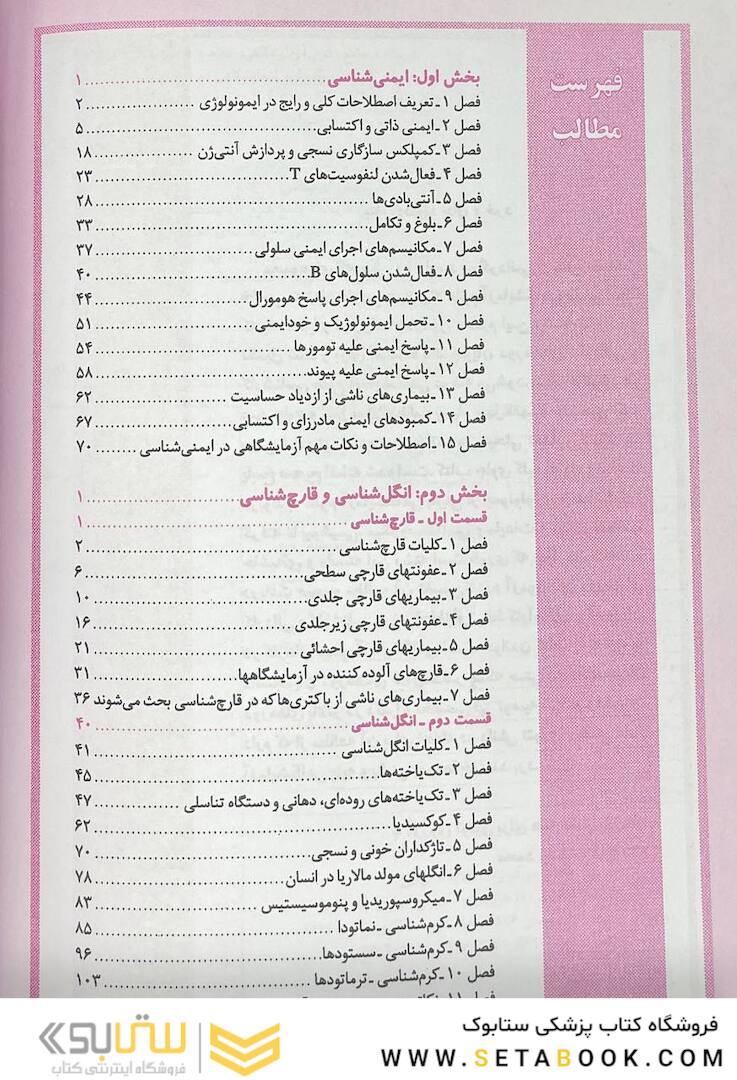 فهرست
مطالب
بخش اول: ایمنی‌شناسی ........ ۱
فصل ۱ـ تعریف اصطلاحات کلی و رایج در ایمونولوژی ........ ۲
فصل ۲ـ ایمنی ذاتی و اکتسابی ........ ۵
فصل ۳ـ کمپلکس سازگاری نسجی و پردازش آنتی‌ژن ........ ۱۸
فصل ۴ـ فعال‌شدن لنفوسیت‌های T ........ ۲۳
فصل ۵ـ آنتی‌بادی‌ها ........ ۲۸
فصل ۶ـ بلوغ و تکامل ........ ۳۳
فصل ۷ـ مکانیسم‌های اجرای ایمنی سلولی ........ ۳۷
فصل ۸ـ فعال‌شدن سلول‌های B ........ ۴۰
فصل ۹ـ مکانیسم‌های اجرای پاسخ هومورال ........ ۴۴
فصل ۱۰ـ تحمل ایمونولوژیک و خودایمنی ........ ۵۱
فصل ۱۱ـ پاسخ ایمنی علیه تومورها ........ ۵۴
فصل ۱۲ـ پاسخ ایمنی علیه پیوند ........ ۵۸
فصل ۱۳ـ بیماری‌های ناشی از ازدیاد حساسیت ........ ۶۲
فصل ۱۴ـ کمبودهای ایمنی مادرزای و اکتسابی ........ ۶۷
فصل ۱۵ـ اصطلاحات و نکات مهم آزمایشگاهی در ایمنی‌شناسی ........ ۷۰
بخش دوم: انگل‌شناسی و قارچ‌شناسی ........ ۱
قسمت اول ـ قارچ‌شناسی ........ ۱
فصل ۱ـ کلیات قارچ‌شناسی ........ ۲
فصل ۲ـ عفونتهای قارچی سطحی ........ ۶
فصل ۳ـ بیماریهای قارچی جلدی ........ ۱۰
فصل ۴ـ عفونتهای قارچی زیرجلدی ........ ۱۶
فصل ۵ـ بیماریهای قارچی احشائی ........ ۲۱
فصل ۶ـ قارچ‌های آلوده کننده در آزمایشگاهها ........ ۳۱
فصل ۷ـ بیماری‌های ناشی از باکتری‌ها که در قارچ‌شناسی بحث می‌شوند ۳۶
قسمت دوم ـ انگل‌شناسی ........ ۴۰
فصل ۱ـ کلیات انگل‌شناسی ........ ۴۱
فصل ۲ـ تک‌یاخته‌ها ........ ۴۵
فصل ۳ـ تک‌یاخته‌های روده‌ای، دهانی و دستگاه تناسلی ........ ۴۷
فصل ۴ـ کوکسیدیا ........ ۶۲
فصل ۵ـ تاژکداران خونی و نسجی ........ ۷۰
فصل ۶ـ انگلهای مولد مالاریا در انسان ........ ۷۸
فصل ۷ـ میکروسپوریدیا و پنوموسیستیس ........ ۸۳
فصل ۸ـ کرم‌شناسی ـ نماتودا ........ ۸۵
فصل ۹ـ کرم‌شناسی ـ سستودها ........ ۹۶
فصل ۱۰ـ کرم‌شناسی ـ ترماتودها ........ ۱۰۳
فروشگاه کتاب پزشکی ستابوک
WWW.SETABOOK.COM
ستابوک
فروشگاه اینترنتی کتاب